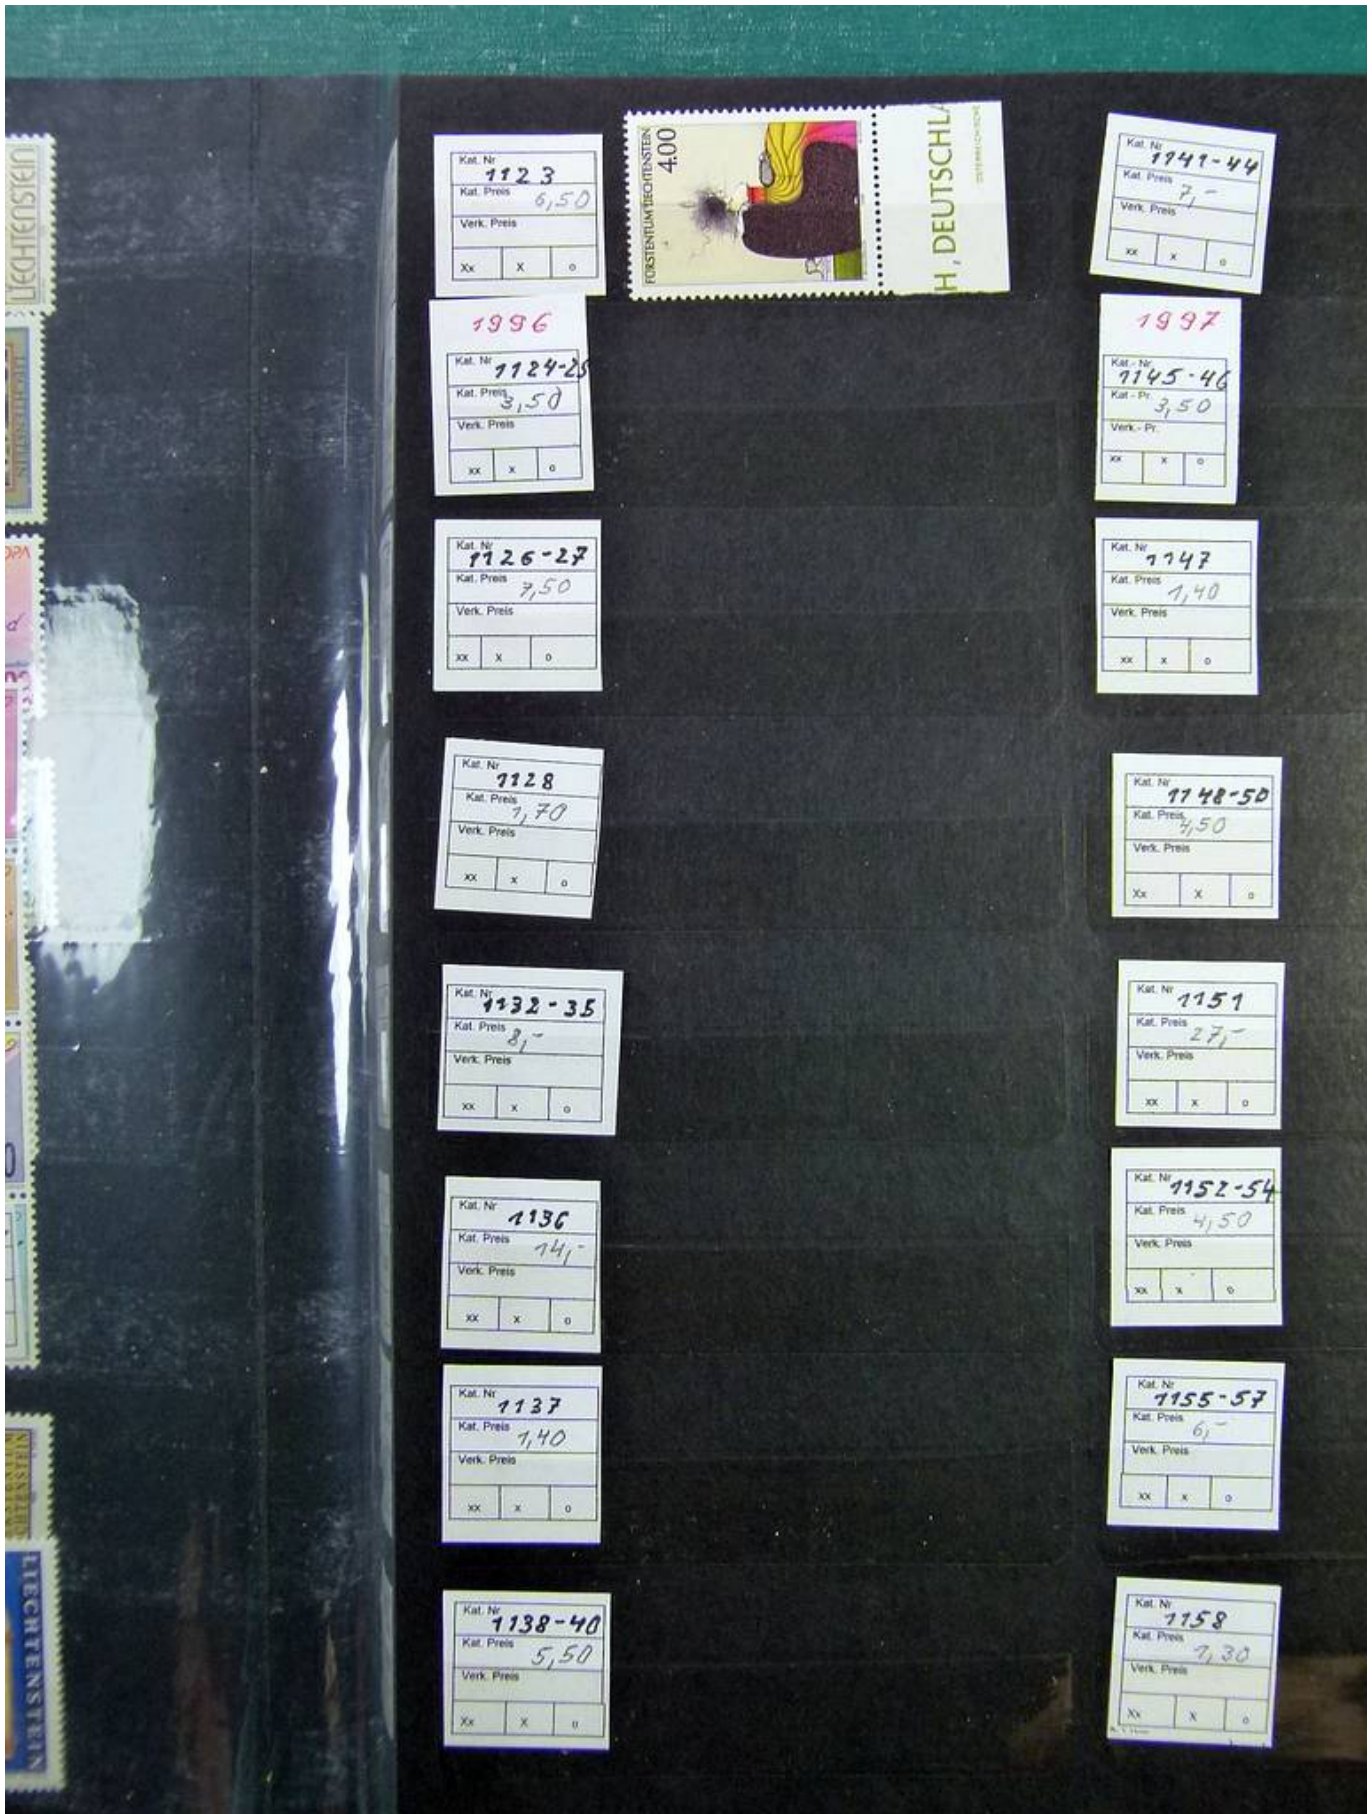 Kat. Nr
1123
Kat. Preis
6,50
Verk. Preis
Xx X o
FÜRSTENTUM LIECHTENSTEIN
4.00
H, DEUTSCHLA
ÖSTERREICHISCHE
1996
Kat. Nr
1124-25
Kat. Preis
3,50
Verk. Preis
xx x o
Kat. Nr
1126-27
Kat. Preis
7,50
Verk. Preis
xx x o
Kat. Nr
1128
Kat. Preis
1,70
Verk. Preis
xx x o
Kat. Nr
1132-35
Kat. Preis
8,-
Verk. Preis
xx x o
Kat. Nr
1136
Kat. Preis
14,-
Verk. Preis
xx x o
Kat. Nr
1137
Kat. Preis
1,40
Verk. Preis
xx x o
Kat. Nr
1138-40
Kat. Preis
5,50
Verk. Preis
Xx X o
Kat. Nr
1141-44
Kat. Preis
7,-
Verk. Preis
xx x o
1997
Kat.- Nr.
1145-46
Kat - Pr.
3,50
Verk.- Pr.
xx x o
Kat. Nr
1147
Kat. Preis
1,40
Verk. Preis
xx x o
Kat. Nr
1148-50
Kat. Preis
4,50
Verk. Preis
Xx X o
Kat. Nr
1151
Kat. Preis
27,-
Verk. Preis
xx x o
Kat. Nr
1152-54
Kat. Preis
4,50
Verk. Preis
xx x o
Kat. Nr
1155-57
Kat. Preis
6,-
Verk. Preis
xx x o
Kat. Nr
1158
Kat. Preis
1,30
Verk. Preis
Xx X o
LIECHTENSTEIN
LIECHTENSTEIN